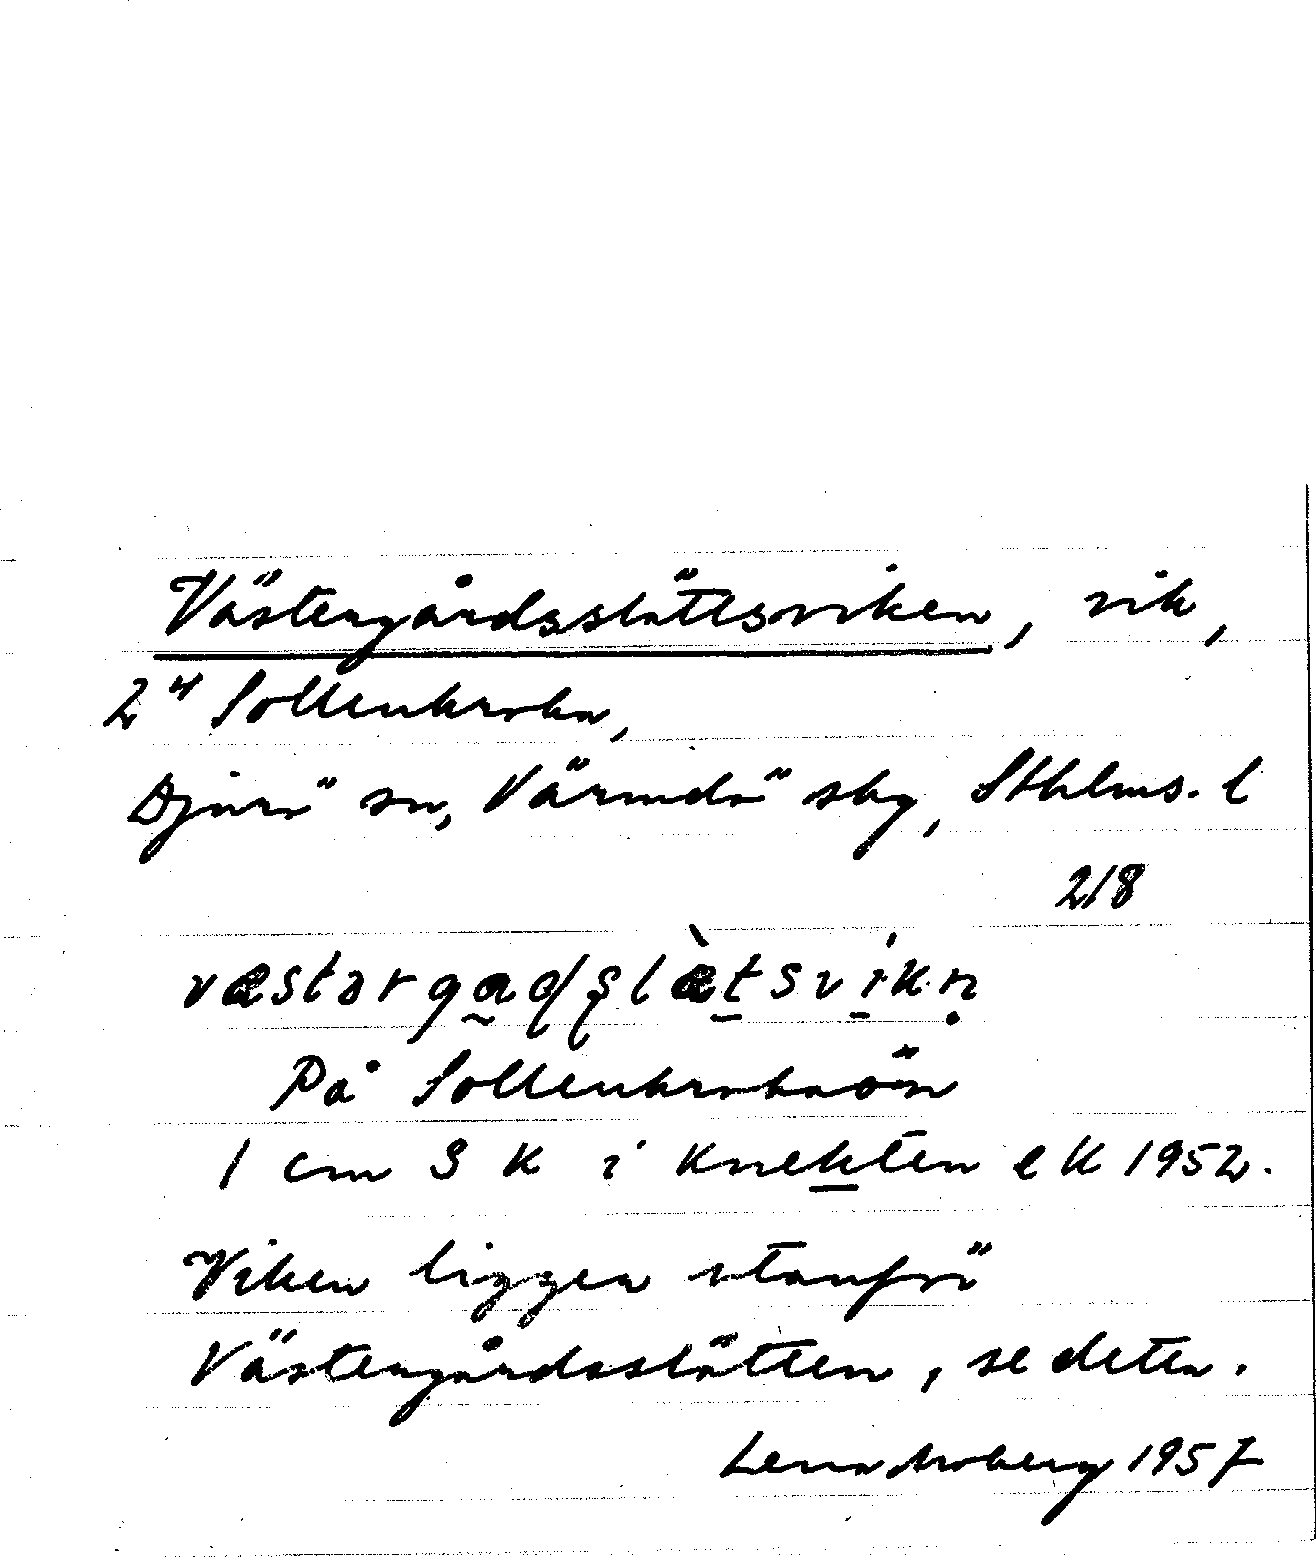 Västergårdsslättsviken, vik,
2" Sollenkroka,
Djurö sn, Värmdö skg, Sthlms. l
2/8
væstərgaɖʂlæ̀tsvíkṇ
På Sollenkrokaön
1 cm S K i Knekten e K 1952.
Viken ligger utanför
Västergårdsslätten, se detta.
Lena Moberg 1957